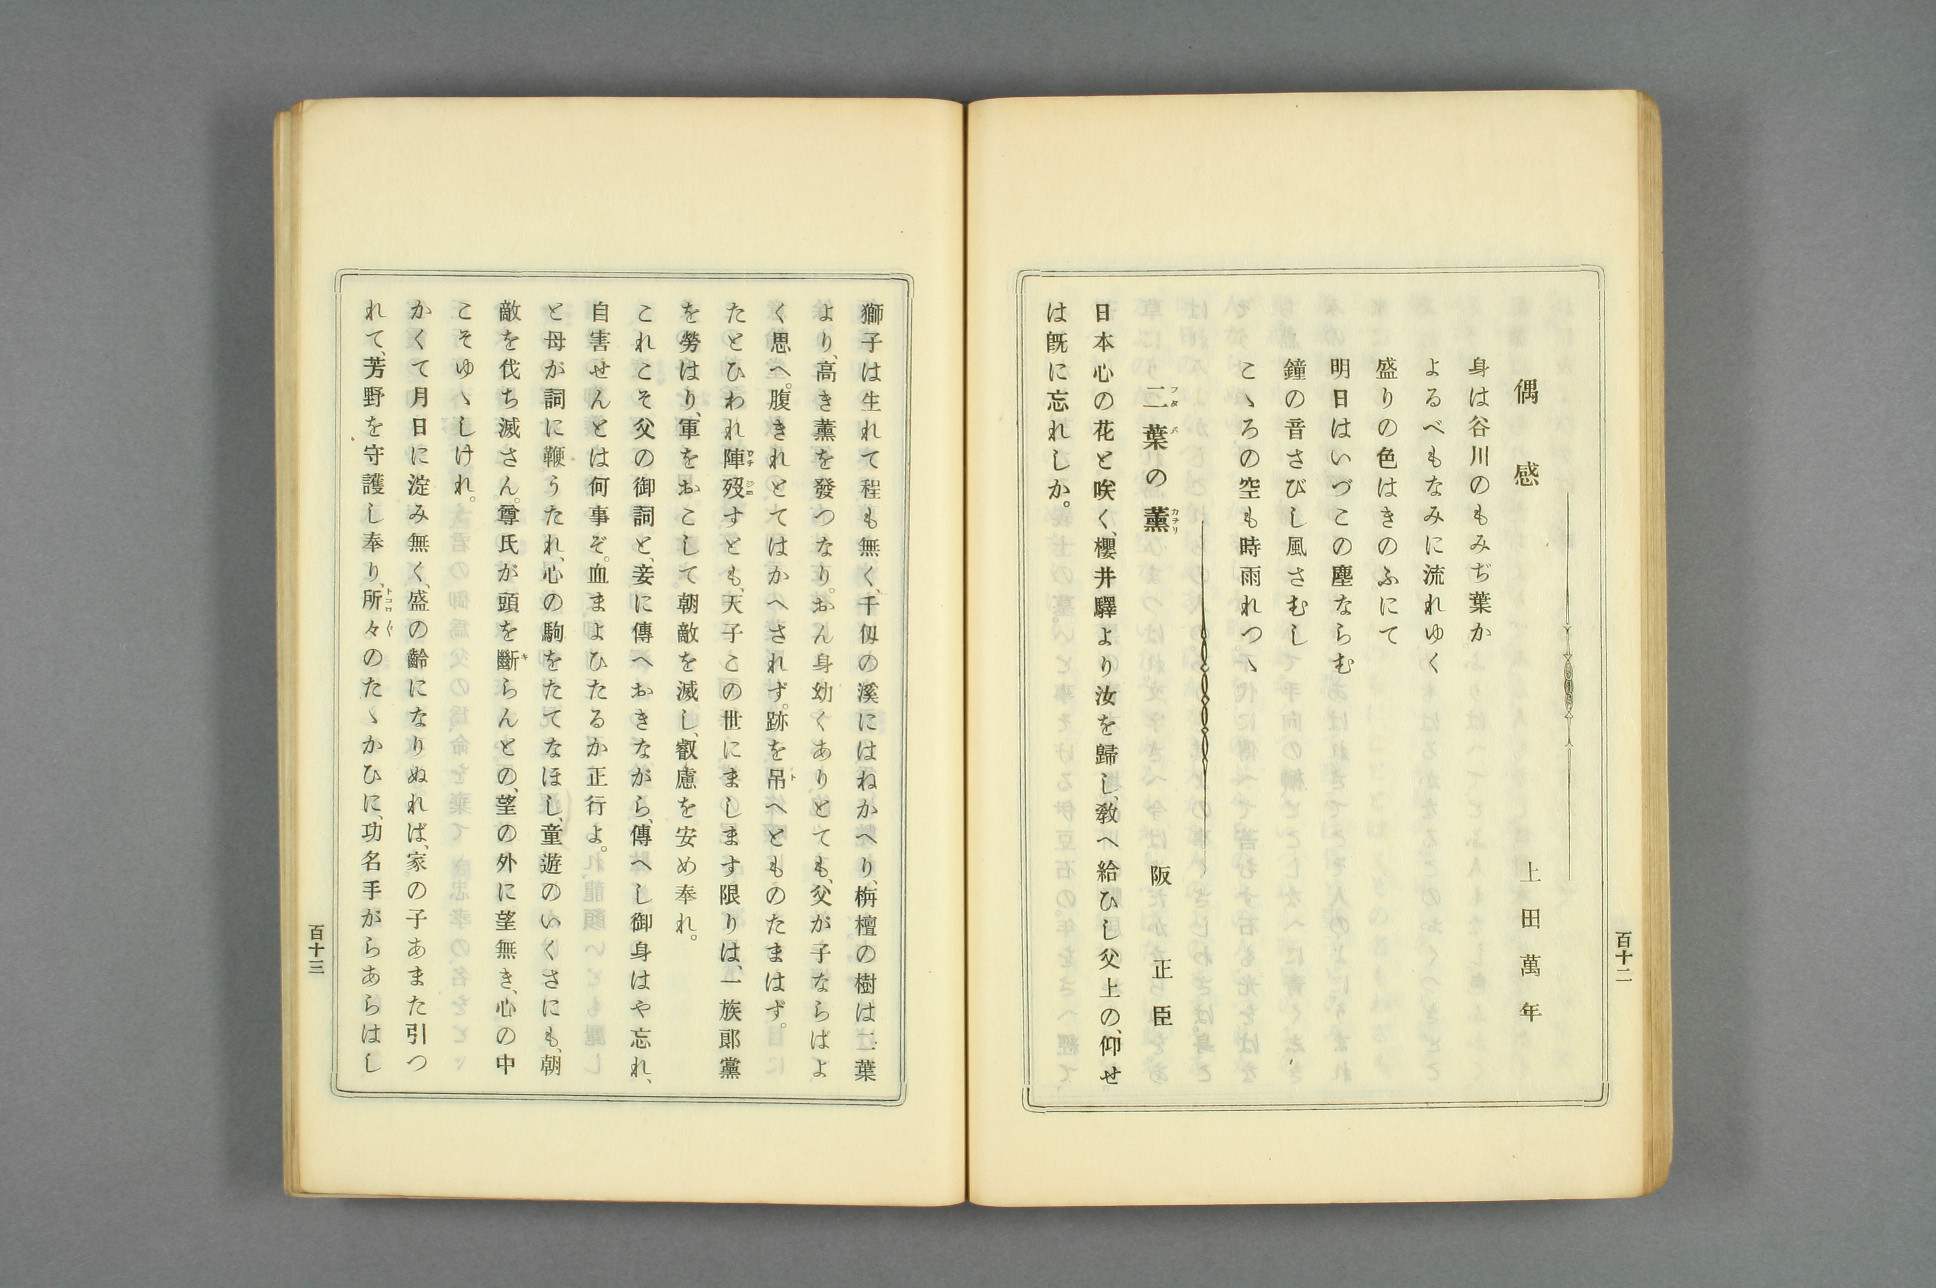 偶感
上田萬年
身は谷川のもみぢ葉か
よるべもなみに流れゆく
盛りの色はきのふにて
明日はいづこの塵ならむ
鐘の音さびし風さむし
こゝろの空も時雨れつゝ
二葉の薫
フタバ カヲリ
阪正臣
日本心の花と咲く、櫻井驛より汝を歸し、敎へ給ひし父上の、仰せ
は旣に忘れしか。
百十二
獅子は生れて程も無く、千仭の溪にはねかへり、栴檀の樹は二葉
より、高き薫を發つなり。おん身幼くありとても、父が子ならばよ
く思へ。腹きれとてはかへされず。跡を吊へとものたまはず。
たとひわれ陣歿すとも、天子この世にまします限りは、一族郞黨
を勞はり、軍をおこして朝敵を滅し、叡慮を安め奉れ。
これこそ父の御詞と、妾に傳へおきながら、傳へし御身はや忘れ、
自害せんとは何事ぞ。血まよひたるか正行よ。
と母が詞に鞭うたれ、心の駒をたてなほし、童遊のいくさにも、朝
敵を伐ち滅さん。尊氏が頭を斷らんとの、望の外に望無き、心の中
こそゆゝしけれ。
かくて月日に淀み無く、盛の齡になりぬれば、家の子あまた引つ
れて、芳野を守護し奉り、所々のたゝかひに、功名手がらあらはし
百十三